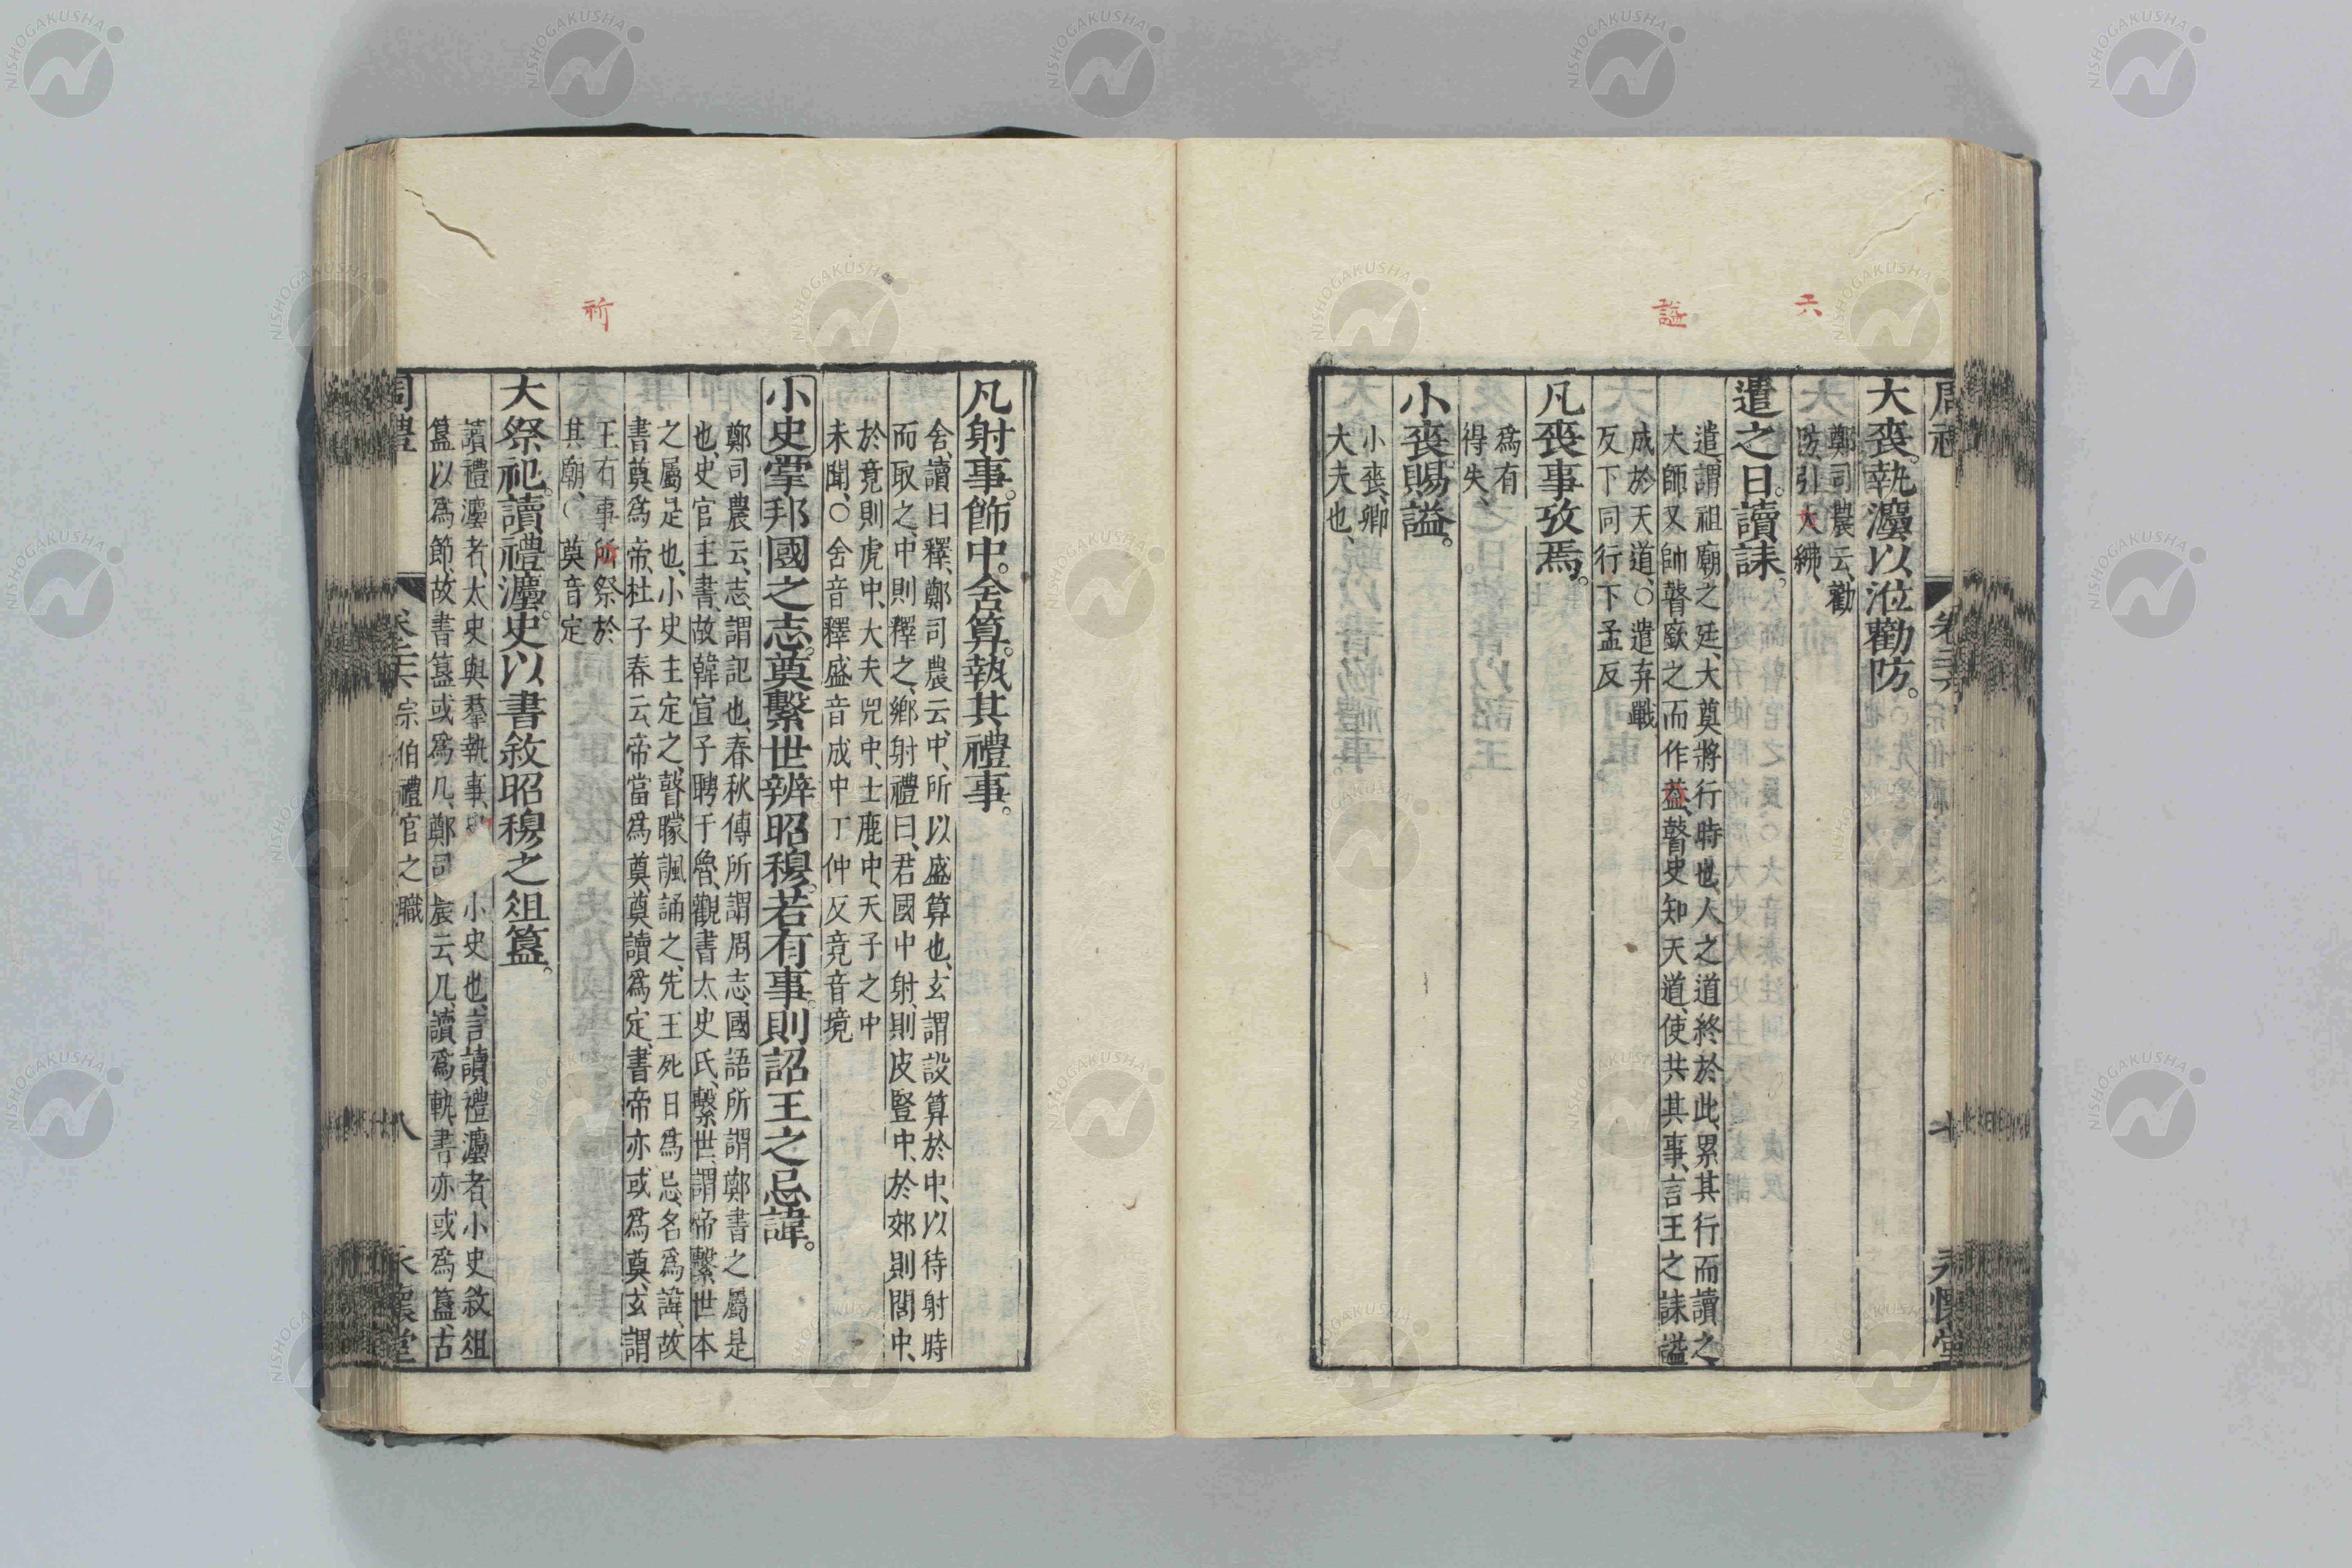 周禮
卷二十六
宗伯禮官之職
七
永懷堂
六
謚
大喪。執灋以涖勸防。
鄭司農云、勸
防引大紼、
遣之日。讀誄。
遣、謂祖廟之廷、大奠將行時也、人之道終於此、累其行而讀之
大師又帥瞽廞之而作益、瞽史知天道、使共其事、言王之誄謚
成於天道、○遣弃戰
反下同行下孟反
凡喪事攷焉。
爲有
得失、
小喪。賜謚。
小喪、卿
大夫也、
祈
凡射事。飾中。舍算。執其禮事。
舍、讀曰釋、鄭司農云、中、所以盛算也、玄謂設算於中、以待射時
而取之、中則釋之、鄉射禮曰、君國中射、則皮豎中、於郊則閭中、
於竟則虎中、大夫兕中、士鹿中、天子之中
未聞、○舍音釋盛音成中丁仲反竟音境
小史掌邦國之志。奠繫世辨昭穆。若有事。則詔王之忌諱。
鄭司農云、志、謂記也、春秋傳所謂周志、國語所謂鄭書之屬是
也、史官主書、故韓宣子聘于魯、觀書太史氏、繫世、謂帝繫、世本
之屬是也、小史主定之、瞽矇諷誦之、先王死日爲忌、名爲諱、故
書奠爲帝、杜子春云、帝當爲奠、奠讀爲定、書帝亦或爲奠、玄謂
王有事所祭於
其廟、○奠音定
大祭祀。讀禮灋。史以書敘昭穆之俎簋。
讀禮灋者、太史與羣執事、史小史也、言讀禮灋者、小史敘俎
簋以爲節、故書簋或爲几、鄭司農云、几、讀爲軌、書亦或爲簋、古
周禮
卷二十六
宗伯禮官之職
八
永懷堂
NISHOGAKUSHA